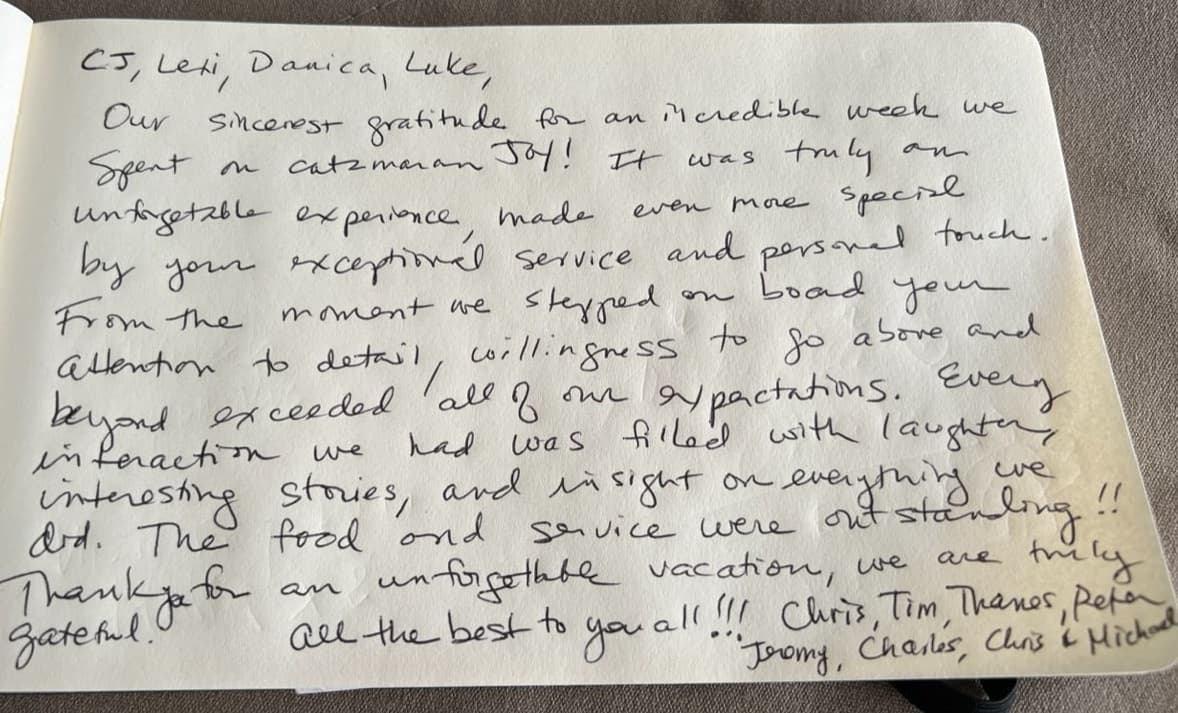 CJ, Lexi, Danica, Luke,
Our sincerest gratitude for an incredible week we
spent on catamaran Joy! It was truly an
unforgetable experience, made even more special
by your exceptional service and personal touch.
From the moment we stepped on board your
attention to detail, willingness to go above and
beyond exceeded all of our expactations. Every
interaction we had was filled with laughter,
interesting stories, and insight on everything we
did. The food and service were outstanding!!
Thank ya for an unforgettable vacation, we are truly
grateful. All the best to you all!!! Chris, Tim, Thanos, Peter
Jeromy, Charles, Chris & Michael